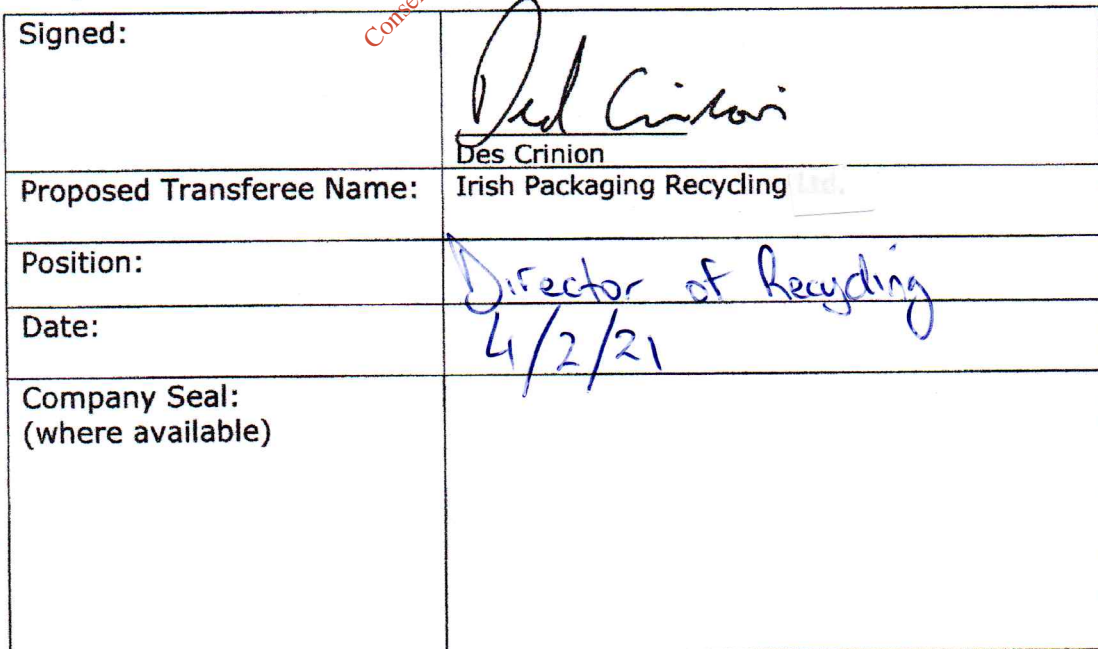 Signed:
Des Crinion
Des Crinion
Proposed Transferee Name: Irish Packaging Recycling Ltd.
Position: Director of Recycling
Date: 4/2/21
Company Seal:
(where available)